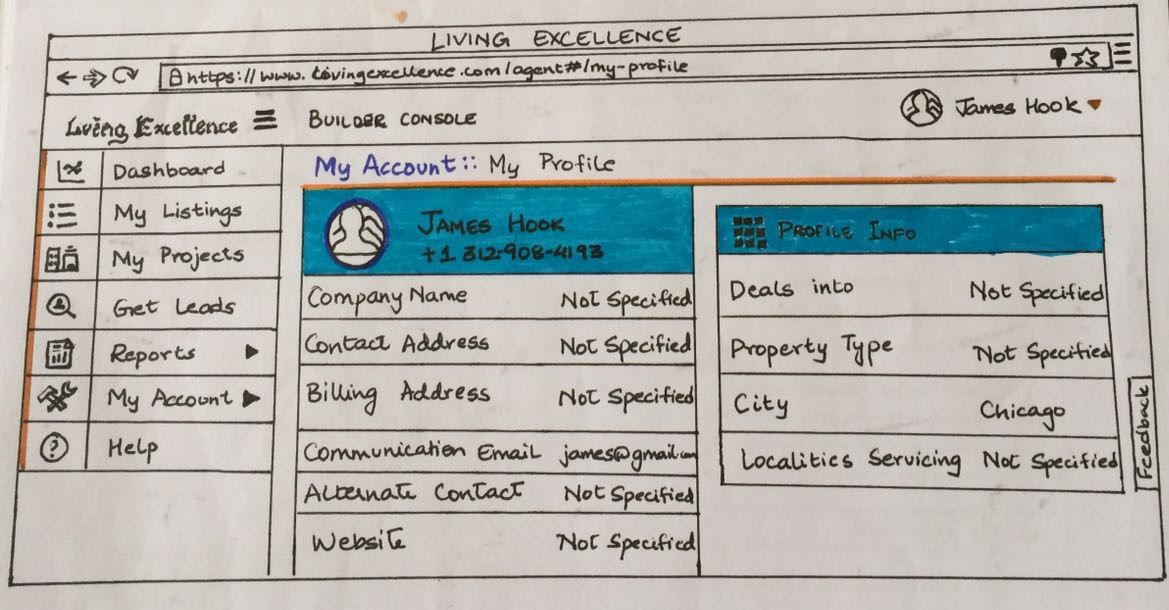 LIVING EXCELLENCE
https://www.livingexcellence.com/agent#/my-profile
Living Excellence BUILDER CONSOLE James Hook
Dashboard
My Listings
My Projects
Get Leads
Reports
My Account
Help
My Account:: My Profile
JAMES HOOK
+1 312-908-4193
Company Name Not Specified
Contact Address Not Specified
Billing Address Not Specified
Communication Email james@gmail.com
Alternate Contact Not Specified
Website Not Specified
PROFILE INFO
Deals into Not Specified
Property Type Not Specified
City Chicago
Localities Servicing Not Specified
Feedback